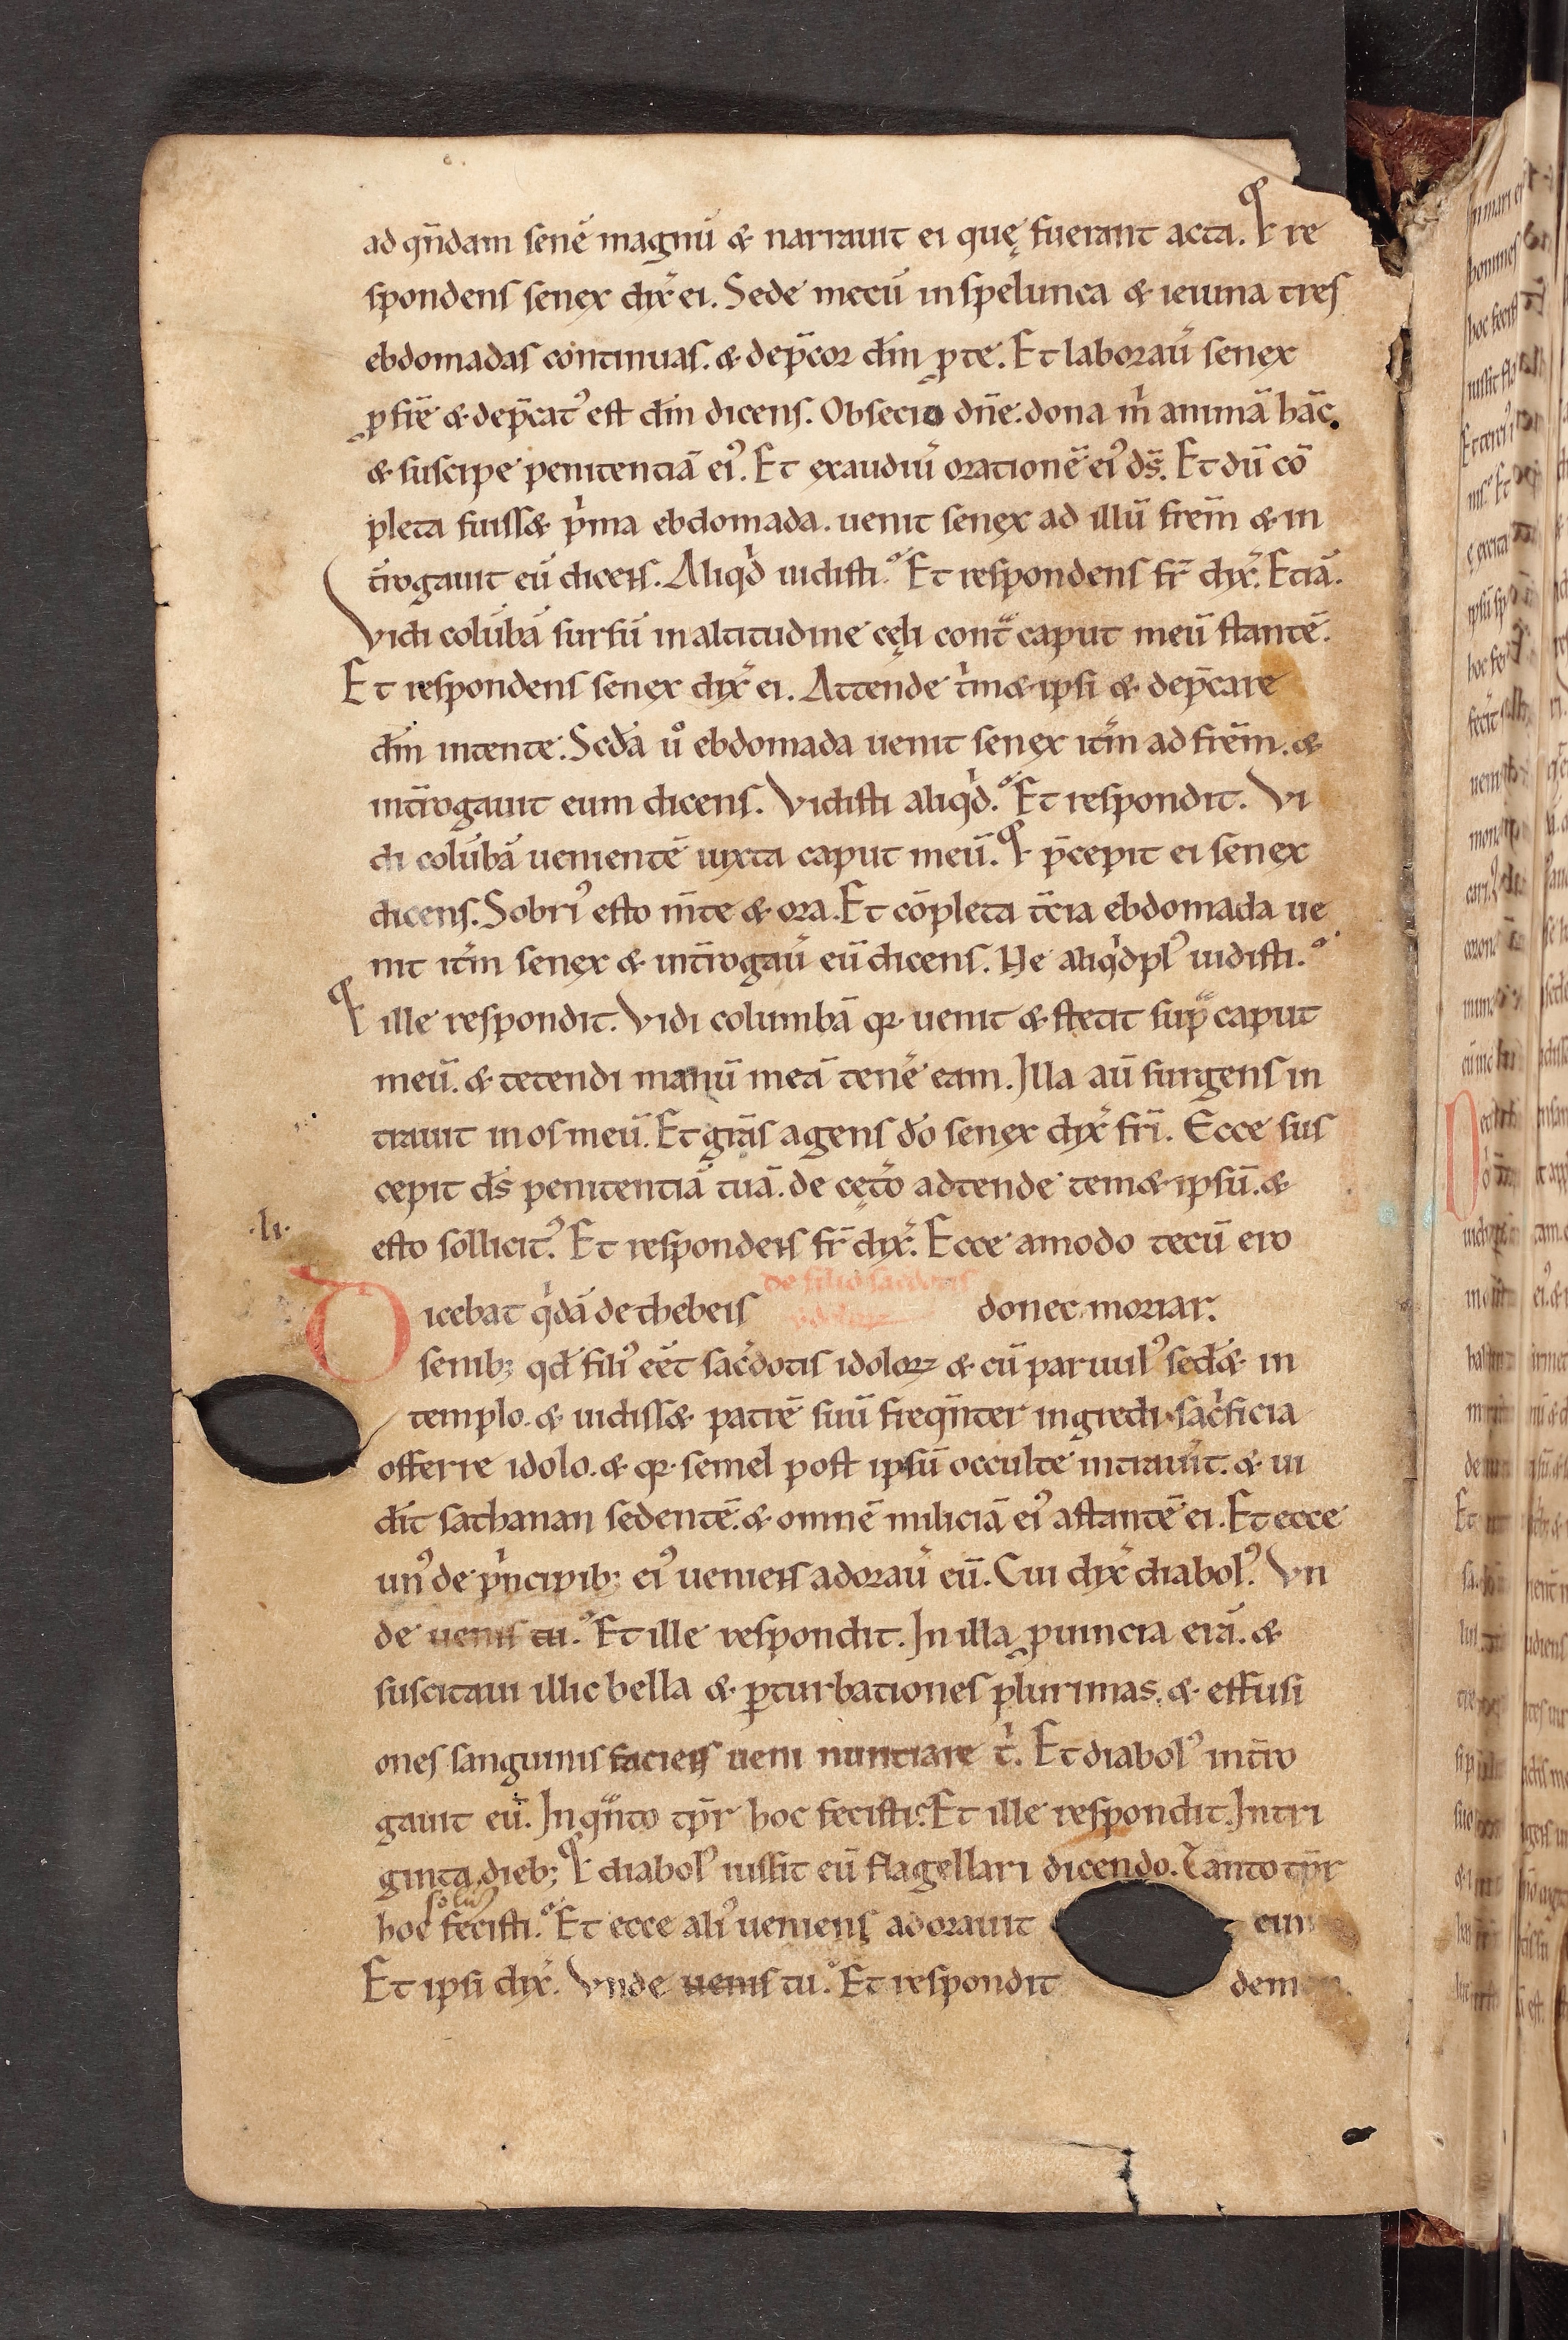 ad qn̄dam senē magnū & narrauit ei quę fuerant acta. Et re
spondens senex dix̄ ei. Sede mecū inspelunca & ieiuna tres
ebdomadas continuas. & dep̄cor dm̄ ꝓte. Et laborau̾ senex
ꝓ fr̄e & dep̄catꝰ est dm̄ dicens. Obsecro dn̄e. dona m̄ animā hāc.
& suscipe penitentiā eiꝰ. Et exaudiu̾ orationē eiꝰ ds̄. Et dū cō
pleta fuiss& pͥma ebdomada. uenit senex ad illū frēm & in
t̄rogauit eū dicens. Aliqͥd uidisti. Et respondens fr̄ dix̾. Etiā.
Vidi colūbā sursū inaltitudine cęli contͣ caput meū stantē.
Et respondens senex dix̾ ei. Attende t̾m&ipsi & dep̄care
dm̄ intente. Scdā uͦ ebdomada uenit senex it̾m ad frēm. &
int̄rogauit eum dicens. Vidisti aliqͥd. Et respondit. Vi
di colūbā uenientē iuxta caput meū. Et p̄cepit ei senex
dicens. Sobriꝰ esto m̄te & ora. Et cōpleta t̄cia ebdomada ue
nit it̾m senex & int̄rogau̾ eū dicens. Ne aliqͥdplꝰ uidisti.
Et ille respondit. Vidi columbā qꝛ uenit & stetit supͣ caput
meū. & tetendi manū meā tene̾ eam. Illa aū surgens in
trauit inosmeū. Et grās agens dō senex dix̾ frī. Ecce sus
cepit ds̄ penitentiā tuā. de cęt̾o adtende tem&ipsū. &
esto sollicitꝰ. Et respondens fr̄ dix̾. Ecce amodo tecū ero
·li·
Dicebat qͥdā dethebeis de filio sacdotis donec moriar.
senibꝫ qd̄ filiꝰ eēt sac̾dotis idoloꝝ & cū paruulꝰ sed& in
templo. & uidiss& patrē suū freqn̄ter ingredi sacͥficia
offerre idolo. & qꝛ semel post ipsū occulte intrauit. & ui
dit sathanan sedentē. & omnē miliciā eiꝰ astantē ei. Et ecce
unꝰ de pͥncipibꝫ eiꝰ ueniens adorau̾ eū. Cui dix̾ diabolꝰ. Vn
de uenis tu. Et ille respondit. In illa ꝓuincia erā. &
suscitaui illic bella & ꝑturbationes plurimas. & effusi
ones sanguinis faciens ueni nuntiare tͥ. Et diabolꝰ int̄ro
gauit eū. In qͣnto tp̄r hoc fecisti. Et ille respondit. Intri
ginta diebꝫ. Et diabolꝰ iussit eū flagellari dicendo. Tanto tp̄r
solū
hoc fecisti. Et ecce aliꝰ ueniens adorauit eum
Et ipsi dix̾. Vnde uenis tu. Et respondit